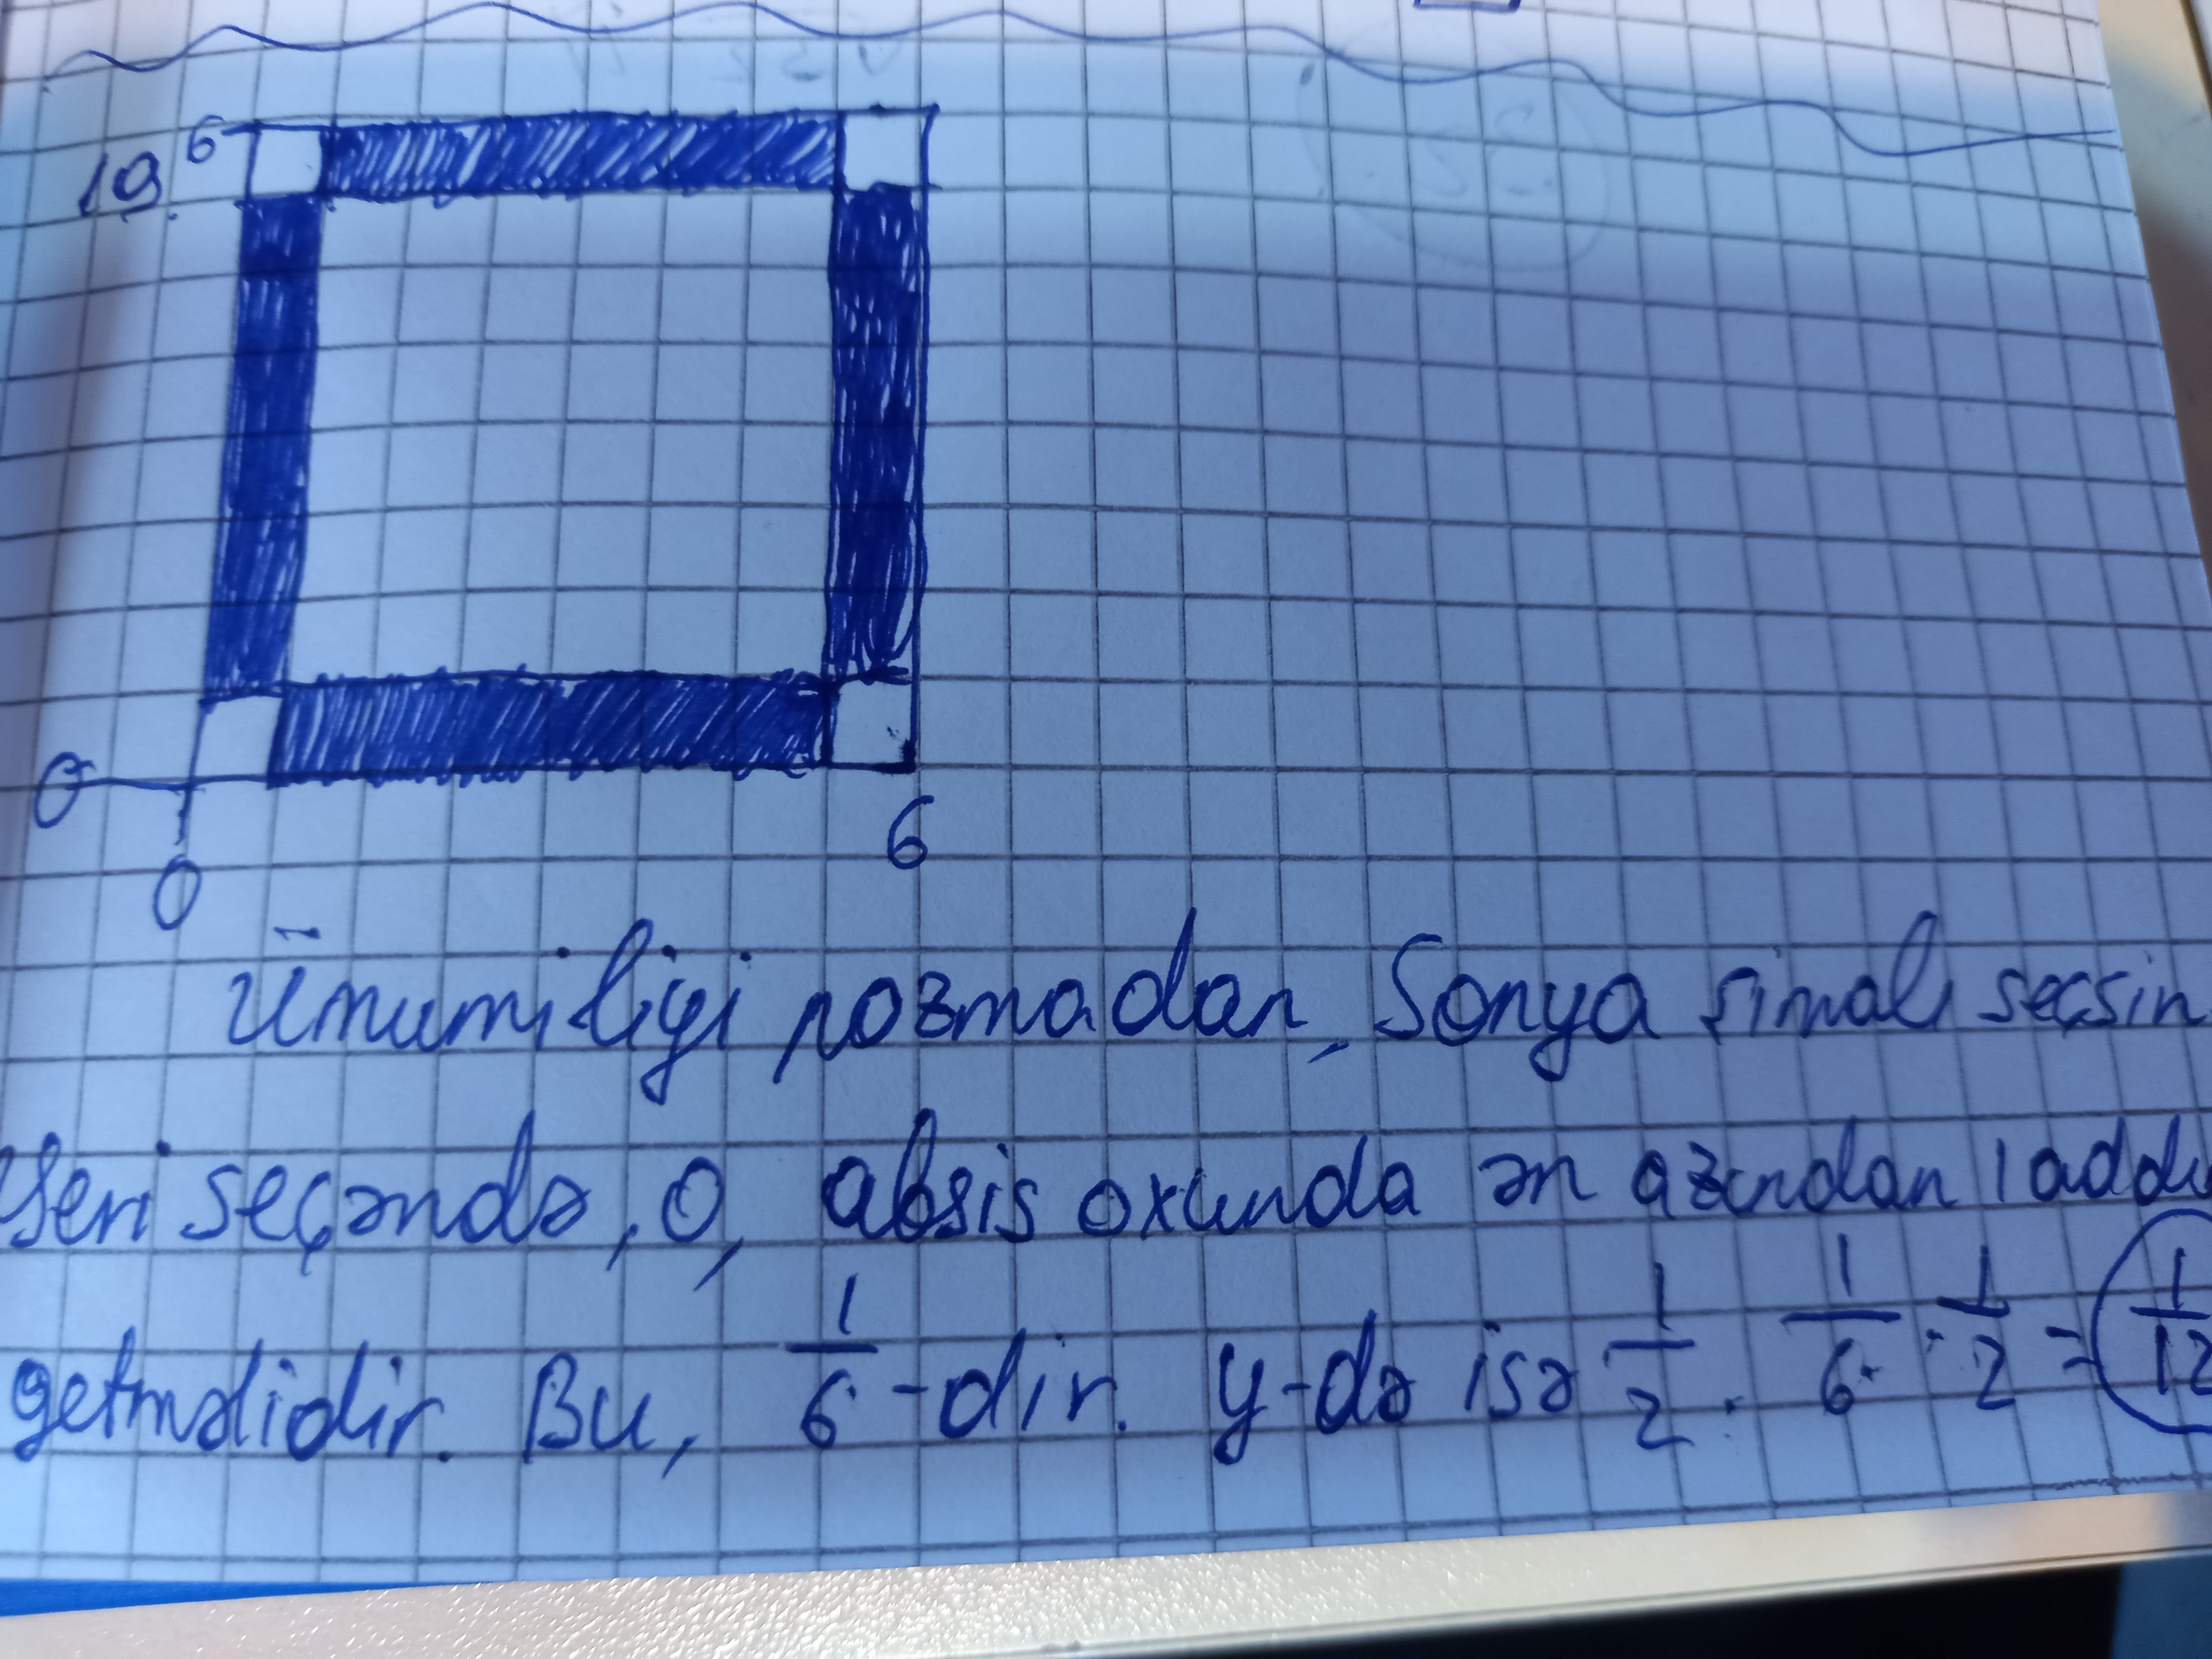 6
19.
0
6
0
Ümumiliyi pozmadan, Sonya şimalı seçsin.
Yeri seçəndə, o, absis oxunda ən azından 1 addı
getməlidir. Bu, 1/6 -dir. y-də isə 1/2. 1/6 · 1/2 = 1/12